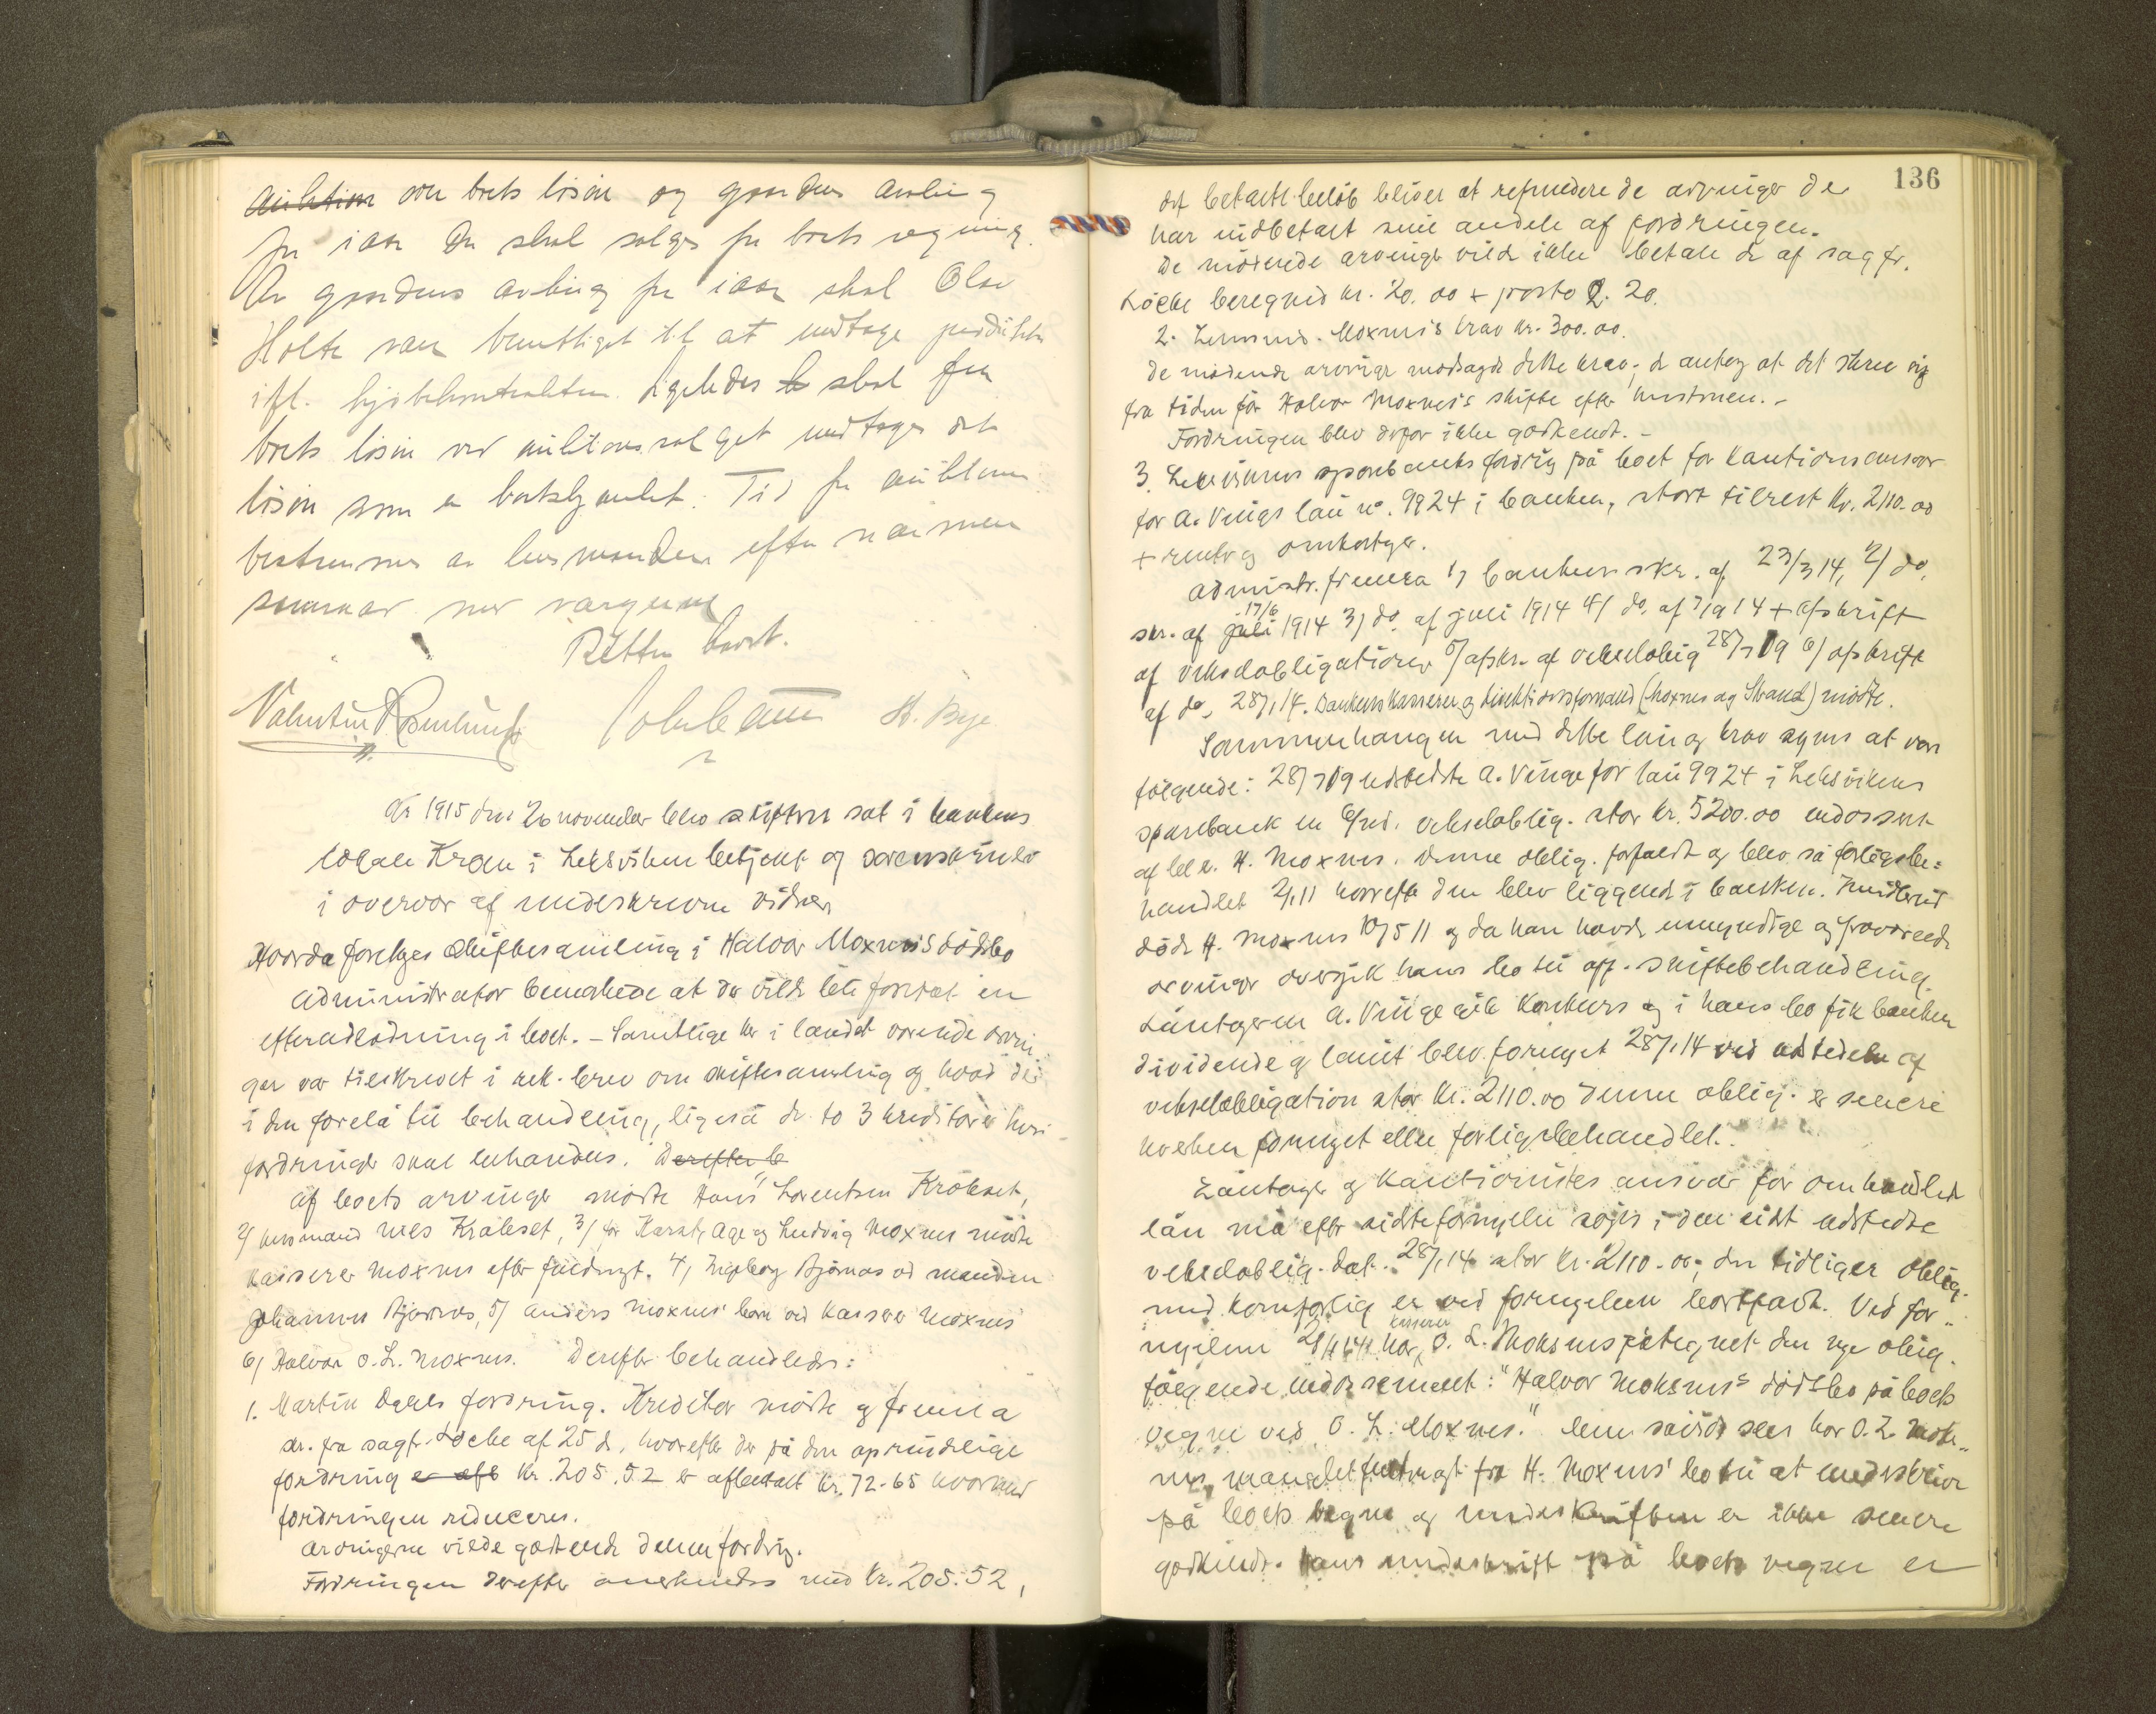 Auktion over boets løsøre og gaardens avling
fra iaar. Der skal selges for boets regning.
Av gaardens avling fra iaar skal Olav
Holte være berettiget til at undtage
ifl. kjøbekontrakten. Ligeledes skal fra
boets løsøre ved auktionssalget undtages det
løsøre som er bortskjænket. Tid for auktionen
bestemmes av lensmanden efter nærmere
samraad med værgerne
Retten hævet.
Valentin H. Bye
År 1915 den 26 november blev skifteret sat i bankens
lokale Kroen i Leksviken betjent af sorenskriver
i overvær af undeskrevne vidner
Hvorda foretoges skiftesamling i Halvor Moxnes's dödsbo
Administrator bemerkede at der vilde bli foretat en
efterudlodning i boet. – Samtlige her i landet værende arvin
ger var tilskrevet i rek. brev om skiftesamling og hvad der
i den forelå til behandling, ligeså de to 3 kreditorer hvis
fordringer skal behandles. Derefter b
af boets arvinger mødte Hans Lorentsen Kråkset,
2/ husmand Nils Kråkset, 3/ for Karst, Age og Ludvig Moxnes mödte
kasserer Moxnes efter fuldmagt. 4, Ingeborg Bjørnøs ved manden
Johannes Bjørnøs, 5/ Anders Moxnes' barn ved kasserer Moxnes
6/ Halvor O. L. Moxnes. Derefter behandledes:
1. Martin Dahls fordring. Kreditor mødte og fremla
skr. fra sagf. Løche af 25 ds. hvorefter der på den oprindelige
fordring er afb kr. 205.52 er afbetalt kr. 72-65 hvormed
fordringen reduceres.
Arvingerne vilde godkende denne fordring.
Fordringen derefter anerkendes med kr. 205.52,
136
det betalte belöb bliver at refundere de arvinger der
har indbetalt sine andele af fordringen.
De mødende arvinger vilde ikke betale de af sagfr.
Löche beregnede kr. 20.00 + porto 2.20.
2. Lensmd. Moxnes's krav kr. 300.00.
De mødende arvinger modsagde dette krav; de antog at det skrev sig
fra tiden før Halvor Moxnes's skifte efter hustruen. –
Fordringen blev derfor ikke godkendt. –
3. Leksvikens sparebanks fordring på boet for kautionsansvar
for A. Vinges lån no. 9924 i banken, stort tilrest kr. 2110.00
+ renter og omkostninger.
Administr. fremla 1) bankens skr. af 23/3 14, 2/ do.
skr. af juli 17/6 1914 3) do. af juli 1914 4/ do. af 7/9 14 + afskrift
af vekselobligationer 5/ afskr. af vekseloblig 28/7 09 6/ afskrift
af do, 28/1 14. Bankens kasserer og direktionsformand (Moxnes og Strand) mødte.
Sammenhængen med dette lån og krav synes at være
fölgende: 28/7 09 udstedte A. Vinge for lån 9924 i Leksvikens
sparebank en 6/md. vekseloblig. stor kr. 5200.00 endosseret
af bl. a. H. Moxnes. Denne oblig. forfaldt og blev så forligsbe=
handlet 2/1 11 hvorefter den blev liggende i banken. Imidlertid
döde H. Moxnes 10/5 11 og da han havde umyndige og fraværende
arvinger overgik hans bo til off. skiftebehandling.
Låntageren A. Vinge gik konkurs og i hans bo fik banken
dividende og lånet blev fornyet 28/1 14 ved udstedelse af
vekselobligation stor kr. 2110.00 denne oblig. er senere
hverken fornyet eller forligsbehandlet.
Låntager og kautionistes ansvar for omhandlede
lån må efter sidste fornyelse søges i den sidst udstedte
vekseloblig. dat. 28/1 14 stor kr. 2110.00; den tidligere oblig.
med komforlig er ved fornyelsen bortfaldt. Ved for-
nyelsen 28/1 1914 har kasserer O. L. Moksnes påtegnet den nye oblig.
fölgende endossement: "Halvor Moksnes dödsbo på boets
vegne ved O. L. Moxnes." Men såvidt sees har O. L. Mok-
nes manglet fuldmagt fra H. Moxnes' bo til at undeskrive
på boets vegne og undeskriften er ikke senere
godkendt. Hans undeskrift på boets vegne er